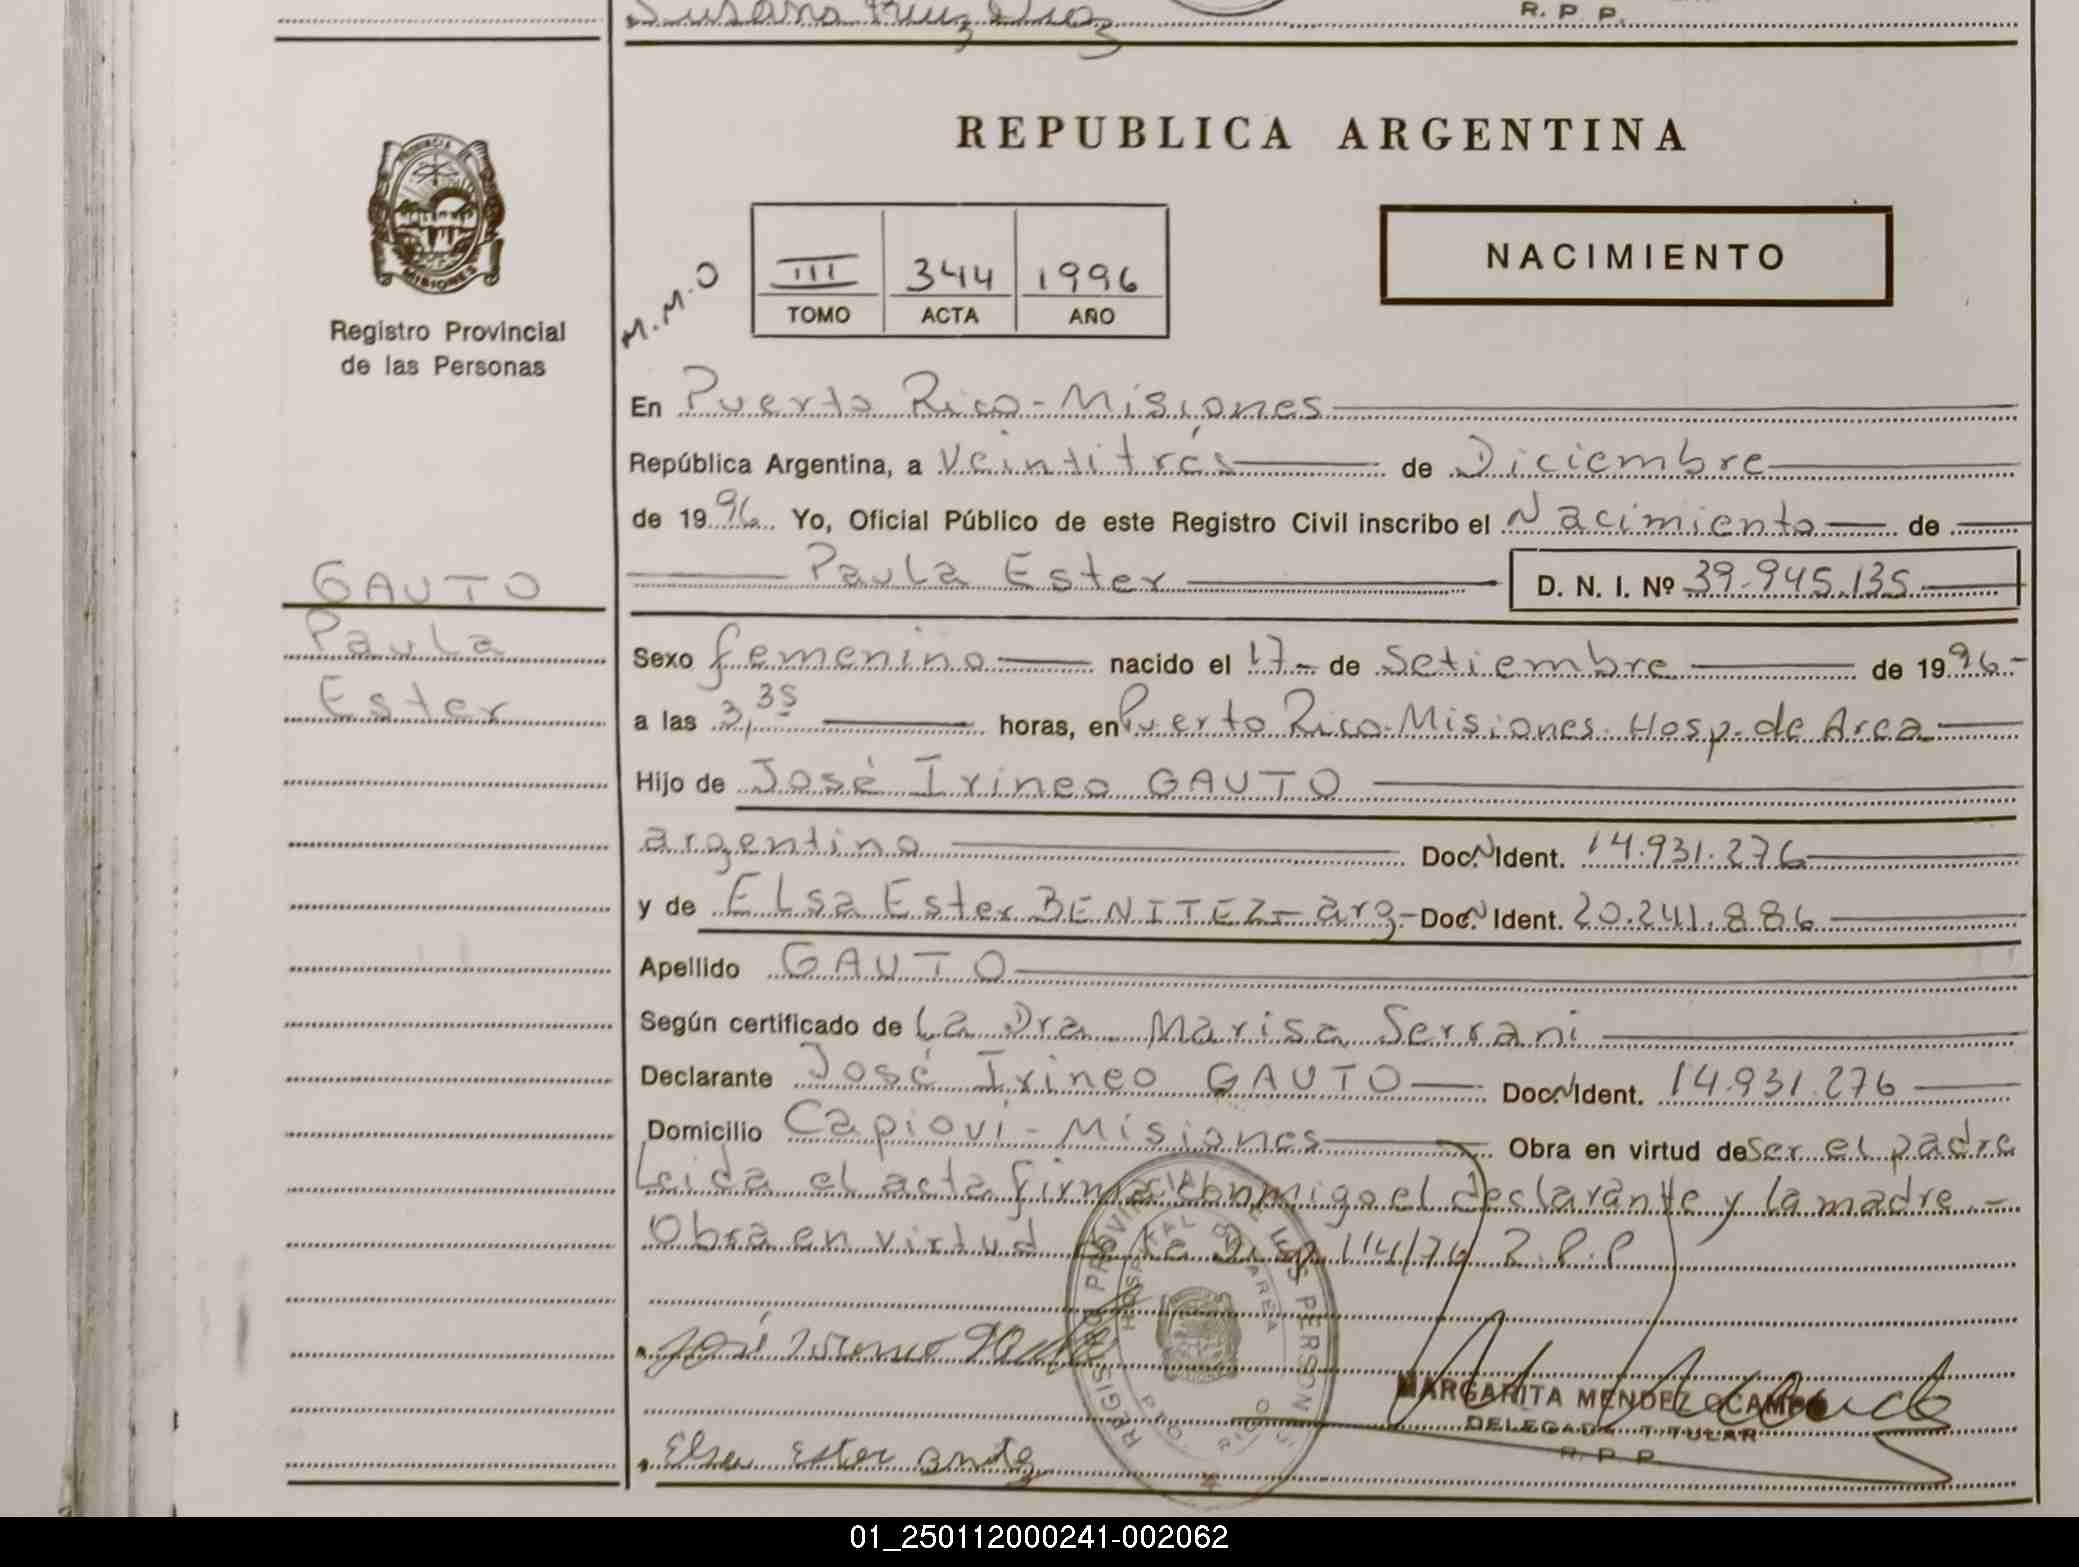 Susana
R. P. P.
REPUBLICA ARGENTINA
PROVINCIA DE
MISIONES
Registro Provincial
de las Personas
M.M.O
III 344 1996
TOMO ACTA AÑO
NACIMIENTO
En Puerto Rico - Misiones
República Argentina, a Veintitrés de Diciembre
de 1996 Yo, Oficial Público de este Registro Civil inscribo el Nacimiento de
GAUTO
Paula Ester D. N. I. Nº 39.945.135
Paula
Sexo femenino nacido el 17 - de Setiembre de 1996 -
Ester
a las 3,35 horas, en Puerto Rico - Misiones - Hosp. de Area
Hijo de José Irineo GAUTO
argentino Doc. N. Ident. 14.931.276
y de Elsa Ester BENITEZ - arg - Doc. N Ident. 20.241.886
Apellido GAUTO
Según certificado de La Dra. Marisa Serrani
Declarante José Irineo GAUTO Doc. N Ident. 14.931.276
Domicilio Capioví - Misiones Obra en virtud de ser el padre
Leida el acta firma conmigo el declarante y la madre. -
Obra en virtud de la Disp 114/76 R.P.P
REGISTRO PROVINCIAL DE LAS PERSONAS
HOSPITAL DE AREA
PTO. RICO
José Irineo Gauto
MARGARITA MENDEZ OCAMPO
DELEGADA TITULAR
R. P. P.
Elsa Ester
01_250112000241-002062